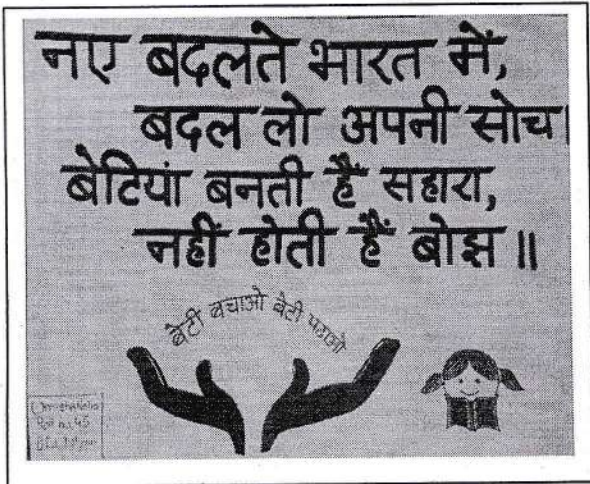 नए बदलते भारत में,
बदल लो अपनी सोच।
बेटियां बनती हैं सहारा,
नहीं होती हैं बोझ॥
बेटी बचाओ बेटी पढाओ
Roll no. 45